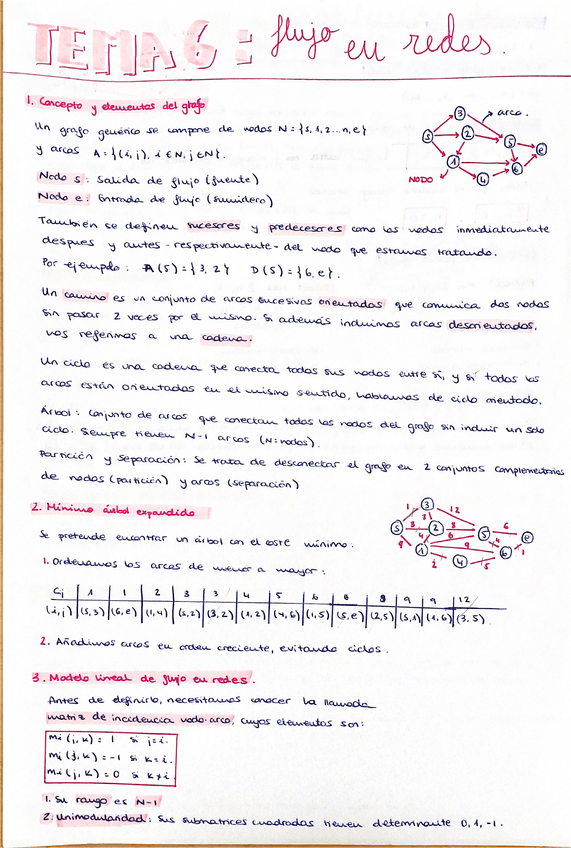 TEMA 6: flujo en redes.
1. Concepto y elementos del grafo
Un grafo genérico se compone de nodos N = {s, 1, 2...n, e}
y arcos A = {(i, j), i ∈ N, j ∈ N}.
Nodo s: Salida de flujo (fuente)
Nodo e: Entrada de flujo (sumidero)
arco.
3
s
2
5
e
1
6
4
NODO
También se definen sucesores y predecesores como los nodos inmediatamente
después y antes - respectivamente - del nodo que estamos tratando.
Por ejemplo: A(5) = {3, 2} D(5) = {6, e}.
Un camino es un conjunto de arcos sucesivos orientados que comunica dos nodos
sin pasar 2 veces por el mismo. Si además incluimos arcos desorientados,
nos referimos a una cadena.
Un ciclo es una cadena que conecta todos sus nodos entre sí, y si todos los
arcos están orientados en el mismo sentido, hablamos de ciclo orientado.
Árbol: Conjunto de arcos que conectan todos los nodos del grafo sin incluir un solo
ciclo. Siempre tienen N-1 arcos (N=nodos).
Partición y Separación: Se trata de desconectar el grafo en 2 conjuntos complementarios
de nodos (partición) y arcos (separación)
2. Mínimo árbol expandido
Se pretende encontrar un árbol con el coste mínimo:
1. Ordenamos los arcos de menor a mayor:
1 3 12
3
s 3 2 8 5 6 e
4 6 4
9 1 9 6 1
2 4 5
Cij 1 1 2 3 3 4 5 6 6 8 9 9 12
(i,j) (s,3) (6,e) (1,4) (s,2) (3,2) (1,2) (4,6) (1,5) (5,e) (2,5) (s,1) (1,6) (3,5)
2. Añadimos arcos en orden creciente, evitando ciclos.
3. Modelo lineal de flujo en redes.
Antes de definirlo, necesitamos conocer la llamada
matriz de incidencia nodo-arco, cuyos elementos son:
mi (j, k) = 1 si j=i.
mi (j, k) = -1 si k=i.
mi (j, k) = 0 si k≠i
1. Su rango es N-1
2. Unimodularidad: Sus submatrices cuadradas tienen determinante 0, 1, -1.